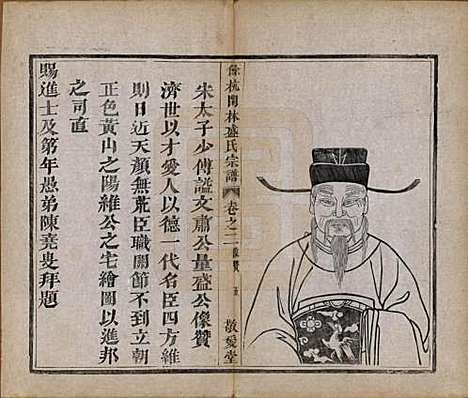 宋太子少傅諡文肅公量盛公像贊
濟世以才愛人以德一代名臣四方維
則日近天顏無荒臣職關節不到立朝
正色黃山之陽維公之宅繪圖以進邦
之司直
賜進士及第年愚弟陳堯叟拜題
餘杭閒林盛氏宗譜
卷之二
像贊
五
敬愛堂